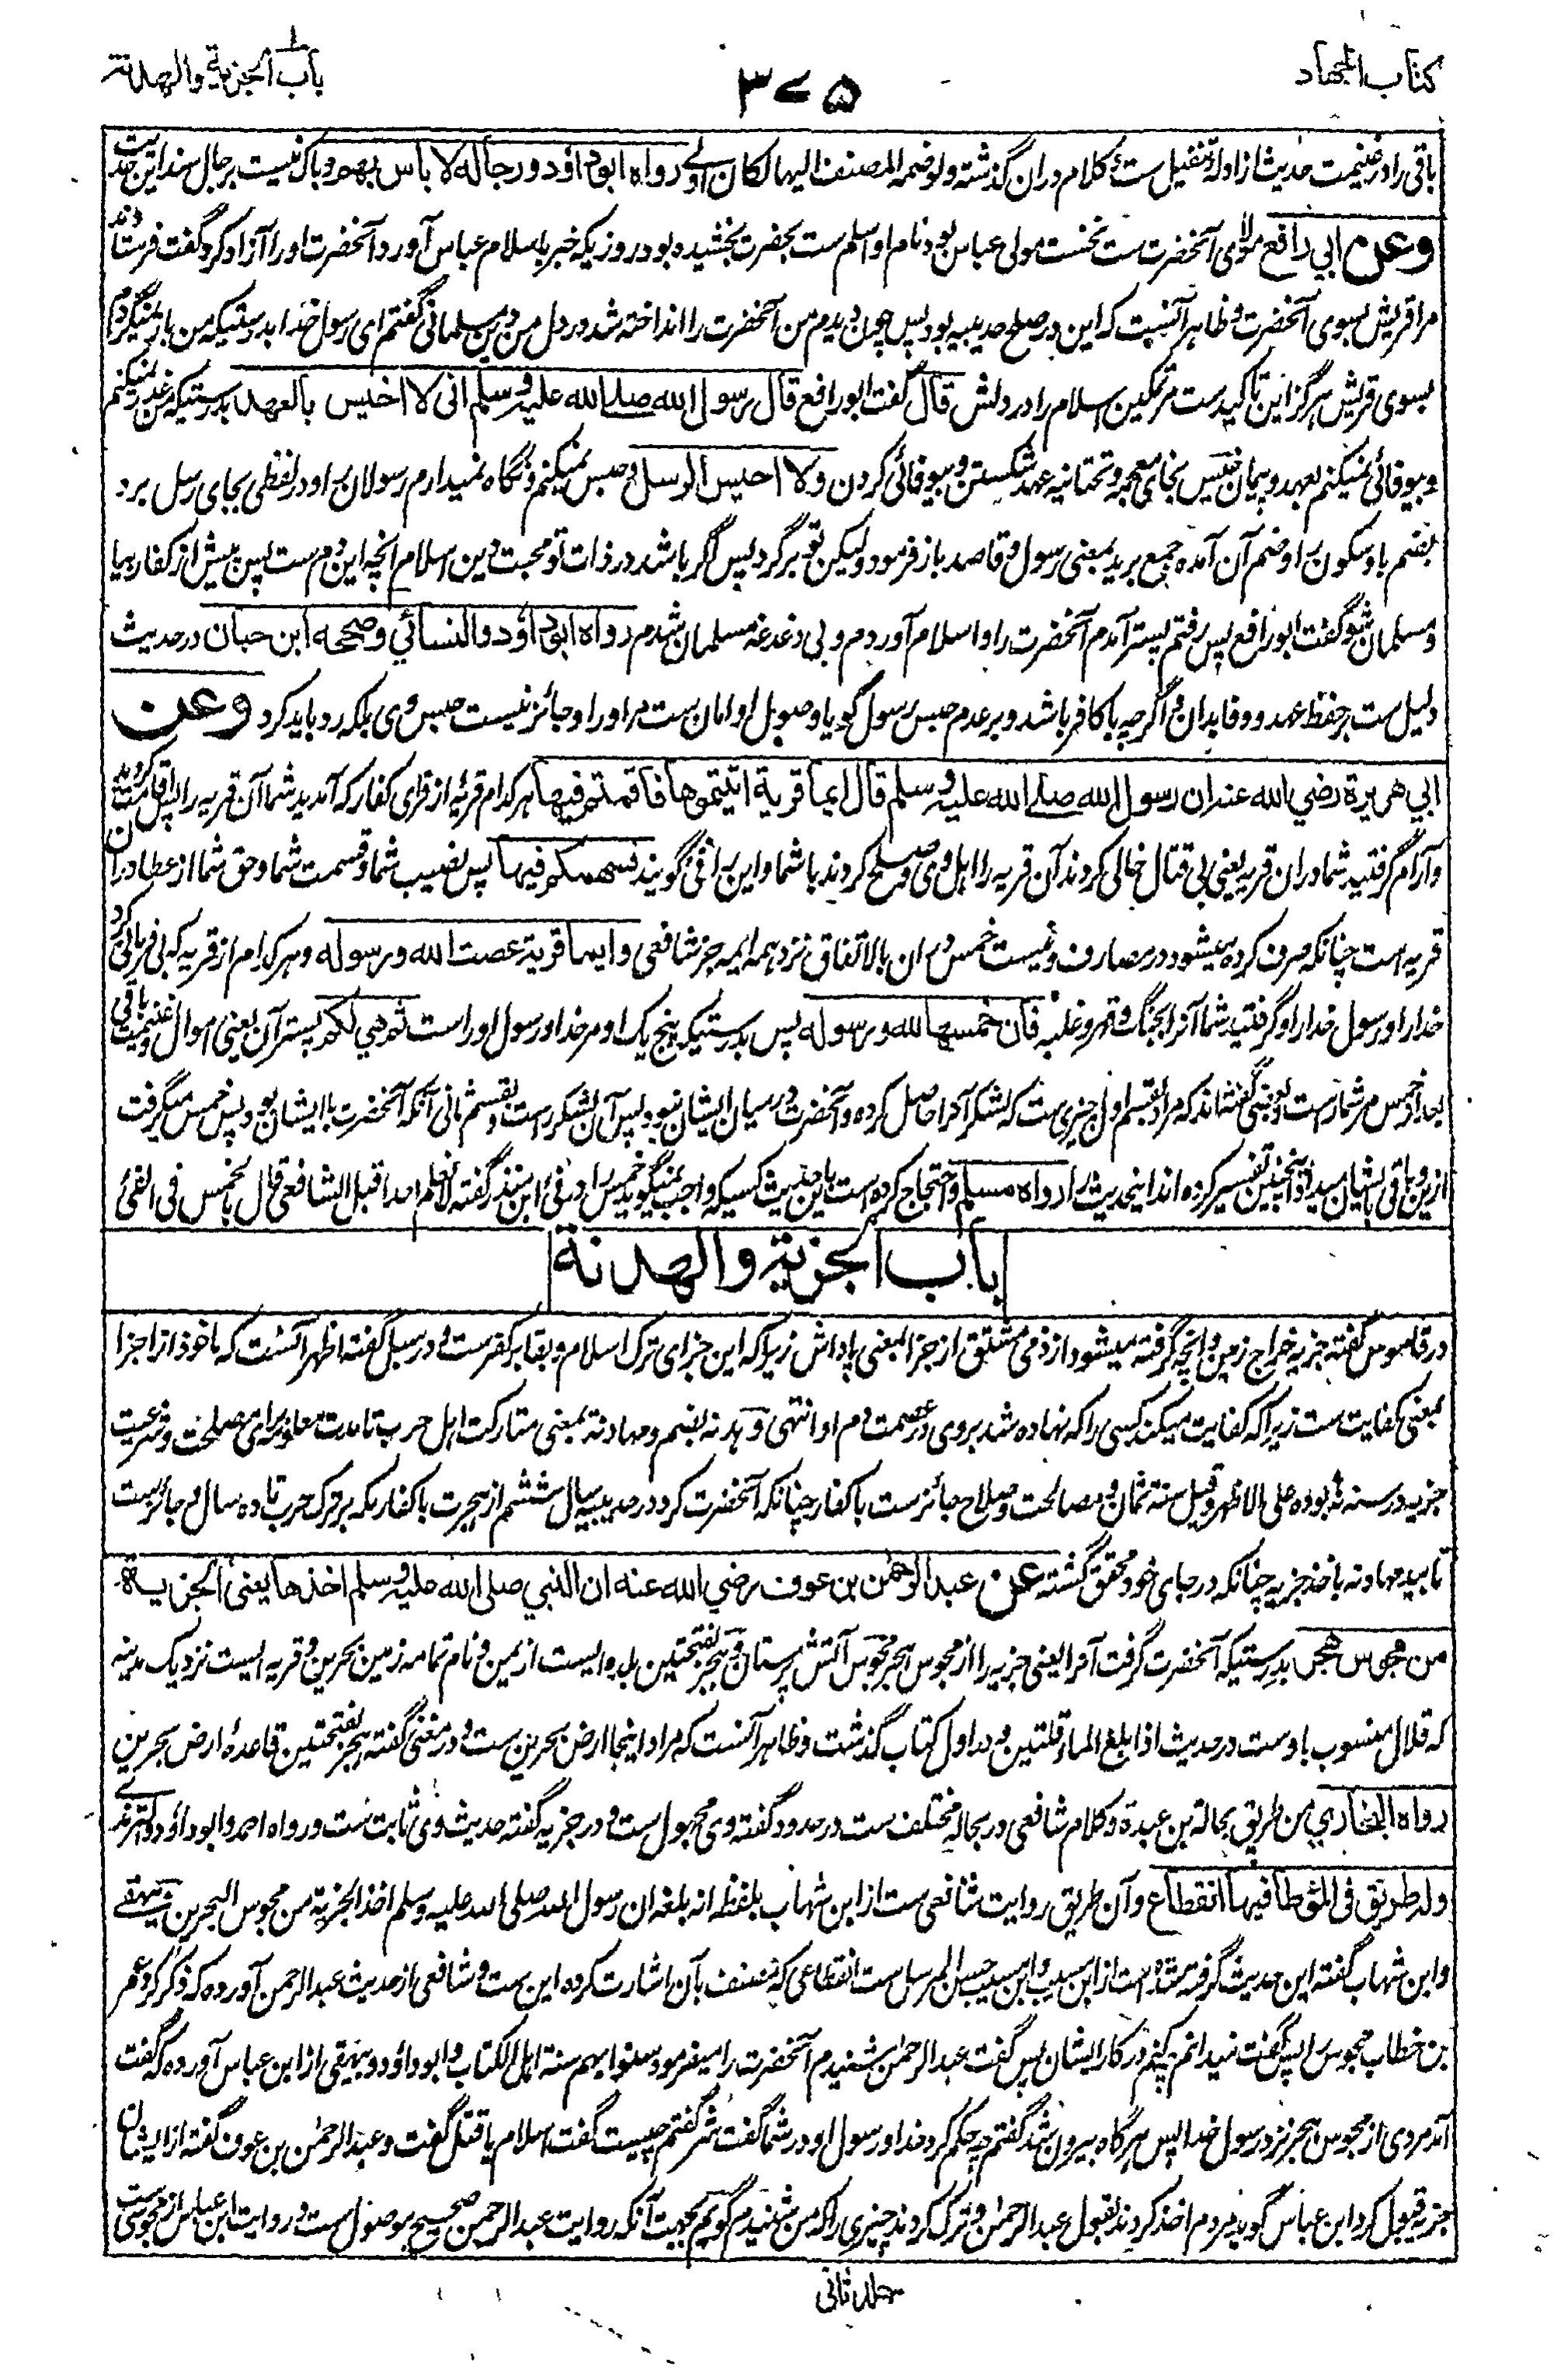 کتاب الجهاد
۳۷۵
باب الجزیة والهدنة
باقی را در غنیمت حدیث از ادلهٔ تنفیل ست و کلام دران گذشته ولو ضمه المصنف الیها لکان اولے رواه ابوداؤد ورجاله لا باس بهم و باک نیست برجال سند این حدیث
وعن ابی رافع مولای آنحضرت ست نخست مولی عباس بود نام او اسلم ست بحضرت بخشیده بود روزیکه خبر باسلام عباس آورد آنحضرت او را آزاد کرد گفت فرستادند
مرا قریش بسوی آنحضرت و ظاهر آنست که این در صلح حدیبیه بود پس چون دیدم من آنحضرت را انداخته شد در دل من دین مسلمانی گفتم ای رسول خدا بدرستیکه من باز نمیگردم
بسوی قریش هرگز این تاکیدست مر تمکین اسلام را در دلش قال گفت ابو رافع قال رسول الله صلے الله علیه وسلم انی لا اخیس بالعهد بدرستیکه من غدر نمیکنم
و بیوفائی نمیکنم بعهد و پیمان خیس بخای معجمه و تحتانیه عهد شکستن و بیوفائی کردن ولا احبس الرسل و حبس نمیکنم و نگاه نمیدارم رسولان را و در لفظی بجای رسل برد
بضم با و سکون را و ضم آن آمده جمع برید بمعنی رسول و قاصد باز فرمود ولیکن تو برگرد پس اگر باشد در ذات تو محبت دین اسلام آنچه این دم ست پس پیش از کفار بیا
و مسلمان شو گفت ابو رافع پس رفتم پستر آمدم آنحضرت را و اسلام آوردم و بی دغدغه مسلمان شدم رواه ابوداؤد والنسائی وصححه ابن حبان در حدیث
دلیل ست بر حفظ عهد و وفا بدان اگرچه با کافر باشد و بر عدم حبس رسول گویا وصول او امان ست مر او را و جائز نیست حبس وی بلکه رد باید کرد وعن
ابی هریرة رضی الله عنه ان رسول الله صلے الله علیه وسلم قال ایما قریة اتیتموها فاقمتم فیها هر کدام قریهٔ از قرای کفار که آمدید شما آن قریه را پس اقامت کردید
و آرام گرفتید شما دران قریه یعنی بی قتال خالی کردند آن قریه را اهل وی و صلح کردند با شما و این را فئ گویند فسهمکم فیها پس نصیب شما و قسمت شما و حق شما از عطا در آن
قریه است چنانکه صرف کرده میشود در مصارف و نیست خمس دران بالاتفاق نزد همه ایمه جز شافعی وایما قریة عصت الله ورسوله و هر کدام از قریه که بی فرمانی کرد
خدا را و رسول خدا را و گرفتید شما آنرا بجنگ و قهر و غلبه فان خمسها لله ورسوله پس بدرستیکه پنج یک او مر خدا و رسول او راست ثم هی لکم پستر آن یعنی اموال غنیمت و باقی
بعد از خمس مر شما راست و بعضی گفته‌اند که مراد بقسم اول چیزی ست که لشکر آنرا حاصل کرده و آنحضرت در میان ایشان نبود پس آن لشکر راست و بقسم ثانی آنکه آنحضرت با ایشان بود پس خمس میگرفت
ازین و باقی بایشان میداد و اینچنین تفسیر کرده اند اینحدیث را رواه مسلم و احتجاج کرده است باین حدیث کسیکه واجب نمیگوید خمس را در فئ ابن منذر گفته لا نعلم احدا قبل الشافعی قال بالخمس فی الفئ
باب الجزیة والهدنة
در قاموس گفته جزیه خراج زمین و آنچه گرفته میشود از ذمی مشتق از جزا بمعنی پاداش زیرا که این جزای ترک اسلام و بقا بر کفرست و در سبل گفته اظهر آنست که ماخوذ از اجزا
بمعنی کفایت ست زیرا که کفایت میکند کسی را که نهاده شد بروی در عصمت دم او انتهی و هدنه بضم و مهادنة بمعنی متارکت اهل حرب تا مدت معلوم برای مصلحت و شرعیت
جزیه در سنه تسع بوده علی الاظهر و قیل سنة ثمان و مصالحت و صلاح جائزست با کفار چنانکه آنحضرت کرد در حدیبیه سال ششم از هجرت با کفار مکه بر ترک حرب تا ده سال و جائزست
تابید مهادنه باخذ جزیه چنانکه در جای خود محقق گشته عن عبد الرحمن بن عوف رضی الله عنه ان النبی صلی الله علیه وسلم اخذها یعنی الجزیة
من مجوس هجر بدرستیکه آنحضرت گرفت آنرا یعنی جزیه را از مجوس هجر مجوس آتش پرستان و هجر بفتحتین بلده ایست از یمن و نام تمامه زمین بحرین و قریه ایست نزدیک مدینه
که قلال منسوب باوست در حدیث اذا بلغ الماء قلتین و در اول کتاب گذشت و ظاهر آنست که مراد اینجا ارض بحرین ست و در مغنی گفته هجر بفتحتین قاعدهٔ ارض بحرین
رواه البخاری من طریق بجالة بن عبدة و کلام شافعی در بجاله مختلف ست در حدود گفته وی مجهول ست و در جزیه گفته حدیث وی ثابت ست و رواه احمد و ابوداؤد والترمذے
وله طریق فی المؤطا فیها انقطاع و آن طریق روایت شافعی ست از ابن شهاب بلفظ انه بلغه ان رسول الله صلی الله علیه وسلم اخذ الجزیة من مجوس البحرین و بیهقے
و ابن شهاب گفته این حدیث گرفته شده است از ابن مسیب و ابن مسیب حسن المرسل ست انقطاعی که مصنف بآن اشارت کرده این ست و شافعی از حدیث عبد الرحمن آورده که ذکر کرد عمر
بن خطاب مجوس را پس گفت نمیدانم چه کنم در کار ایشان پس گفت عبد الرحمن شنیدم آنحضرت را میفرمود سنوا بهم سنة اهل الکتاب و ابوداؤد و بیهقی از ابن عباس آورده که گفت
آمد مردی از مجوس هجر نزد رسول خدا پس هرگاه بیرون شد گفتم چه حکم کرد خدا و رسول او در شما گفت شر گفتم چیست گفت اسلام یا قتل گفت و عبد الرحمن بن عوف گفته از ایشان
جزیه قبول کرد ابن عباس گوید مردم اخذ کردند بقول عبد الرحمن و ترک کردند چیزی را که من شنیدم گویم بجهت آنکه روایت عبد الرحمن صحیح موصول ست و روایت ابن عباس از مجوسی ست
جلد ثانی